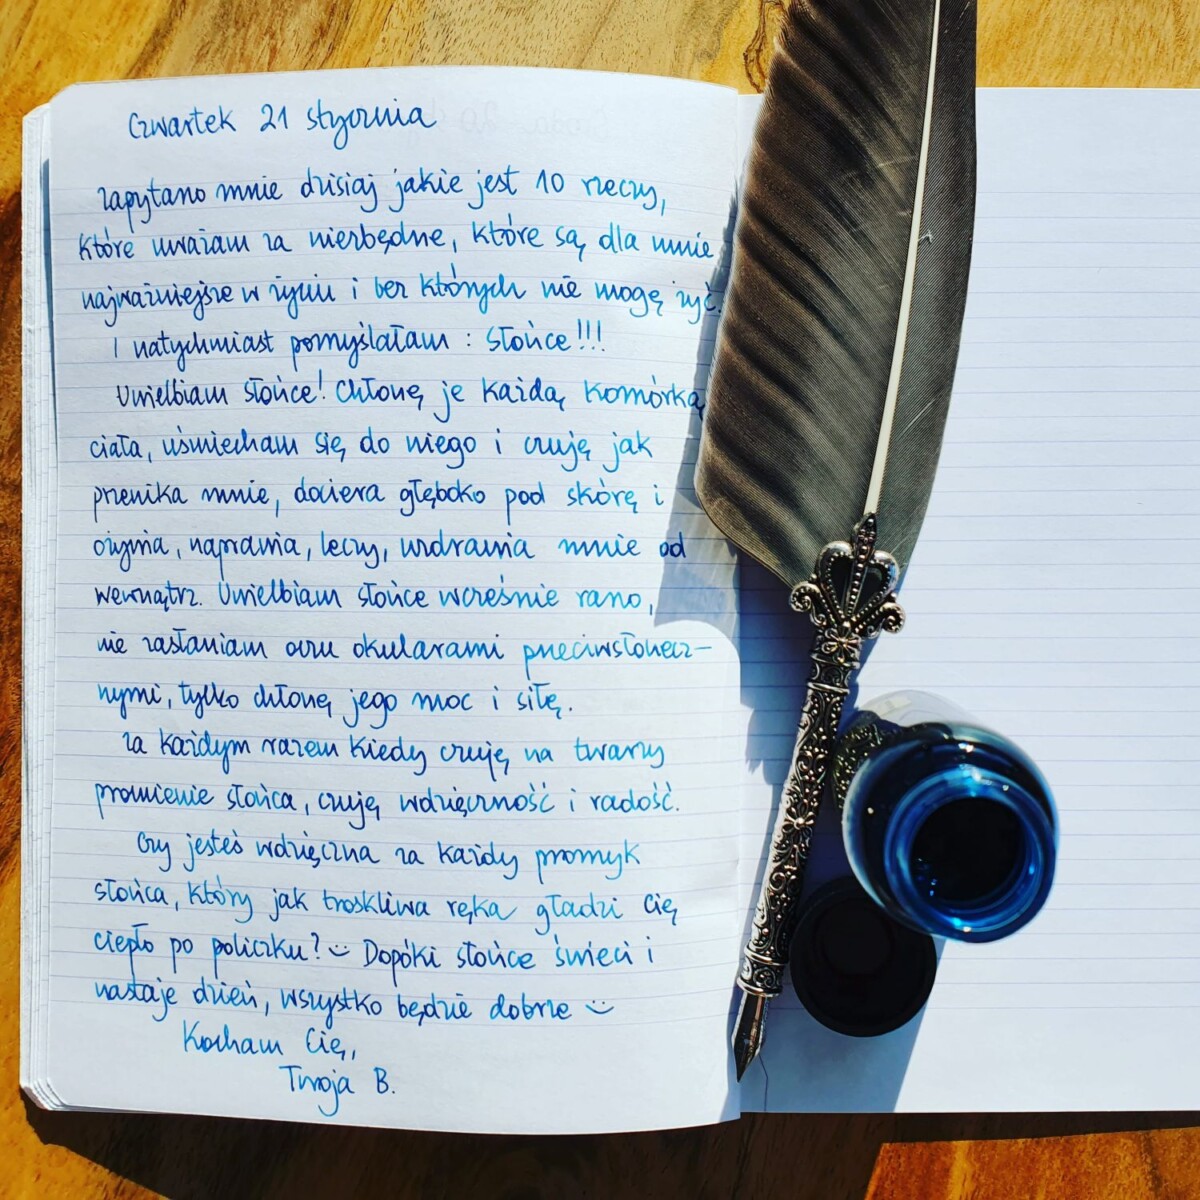 Czwartek 21 stycznia
Zapytano mnie dzisiaj jakie jest 10 rzeczy,
które uważam za niezbędne, które są dla mnie
najważniejsze w życiu i bez których nie mogę żyć.
I natychmiast pomyślałam : Słońce!!!
Uwielbiam słońce! Chłonę je każdą komórką
ciała, uśmiecham się do niego i czuję jak
przenika mnie, dociera głęboko pod skórę i
ożywia, naprawia, leczy, uzdrawia mnie od
wewnątrz. Uwielbiam słońce wcześnie rano,
nie zasłaniam oczu okularami przeciwsłonecz-
nymi, tylko chłonę jego moc i siłę.
Za każdym razem kiedy czuję na twarzy
promienie słońca, czuję wdzięczność i radość.
Czy jesteś wdzięczna za każdy promyk
słońca, który jak troskliwa ręka gładzi Cię
ciepło po policzku? Dopóki słońce świeci i
nastaje dzień, wszystko będzie dobrze
Kocham Cię,
Twoja B.